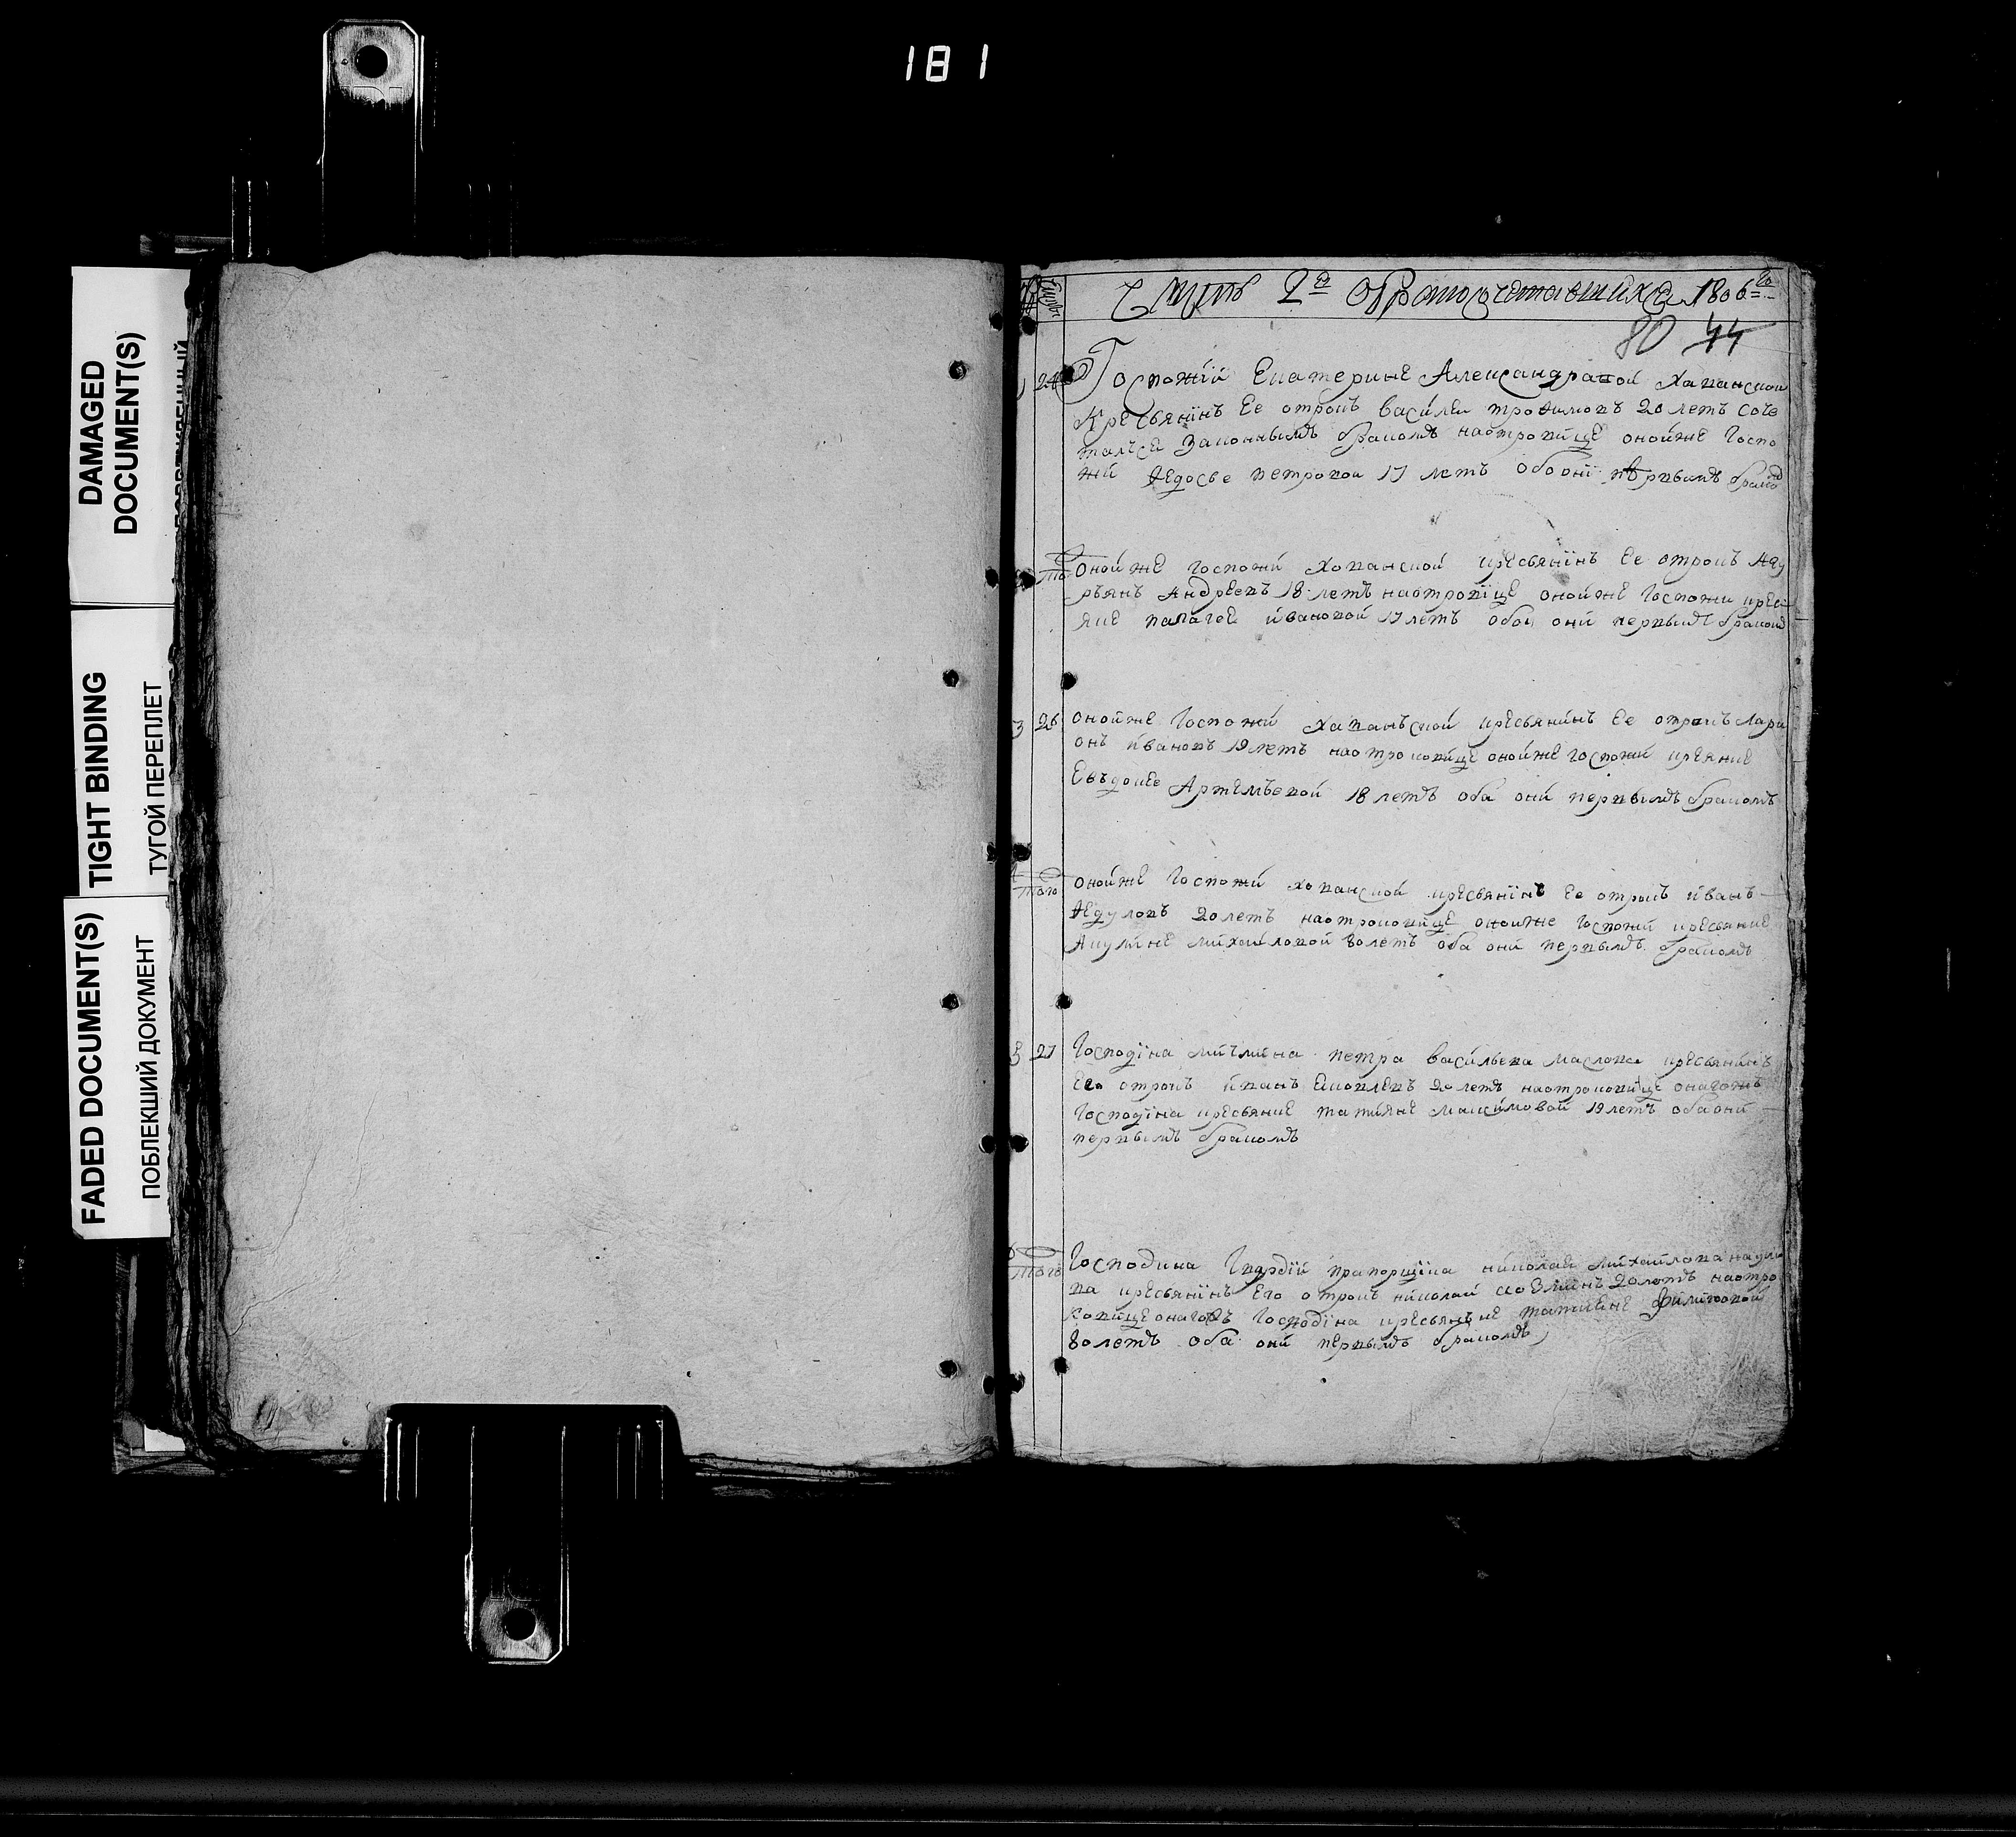 181
DAMAGED
DOCUMENT(S)
TIGHT BINDING
ТУГОЙ ПЕРЕПЛЕТ
FADED DOCUMENT(S)
ПОБЛЕКШИЙ ДОКУМЕНТ
Часть 2я обракосочетавшихся 1806=го
80 44
24 Госпожи Екатерины Александравой Хаванской
Кресьянинъ Ее отрокъ василеи трофимовъ 20 летъ соче
талъся законнымъ бракомъ наотроковице онойже Госпо
жи Федосье петровой 17 летъ оба они первымъ бракомъ
того онойже госпожи Хованской кресьянинъ Ее отрокъ
рьянъ Андреевъ 18 летъ наотроковице онойже госпожи крес
яне палагее ивановой 17 летъ оба они первымъ бракомъ
3 26 онойже Госпожи хаванъской кресьянинъ Ее отрокъ Лари
онъ ивановъ 19 летъ наотроковице онойже госпожи кресяние
Евъдокее Артемъевой 18 летъ оба они первымъ бракомъ
4 того онойже Госпожи хованской кресьянинъ Ее отрокъ иванъ
Федуловъ 20 летъ наотроковице онойже госпожи кресьяние
Акулине михаиловой 80летъ оба они первымъ бракомъ
5 27 Господина мичмана петра васильева маслова кресьянинъ
Его отрокъ иванъ 20 летъ наотроковице онагожъ
Господина кресьяние татияне максимовой 19 летъ оба они
первымъ бракомъ
6 того Господина Гвардии прапорщика николая михайлова
ва кресьянинъ Его отрокъ николай 20 летъ наотро
ковице онагожъ господина кресьяние татияне
80летъ оба они первымъ бракомъ